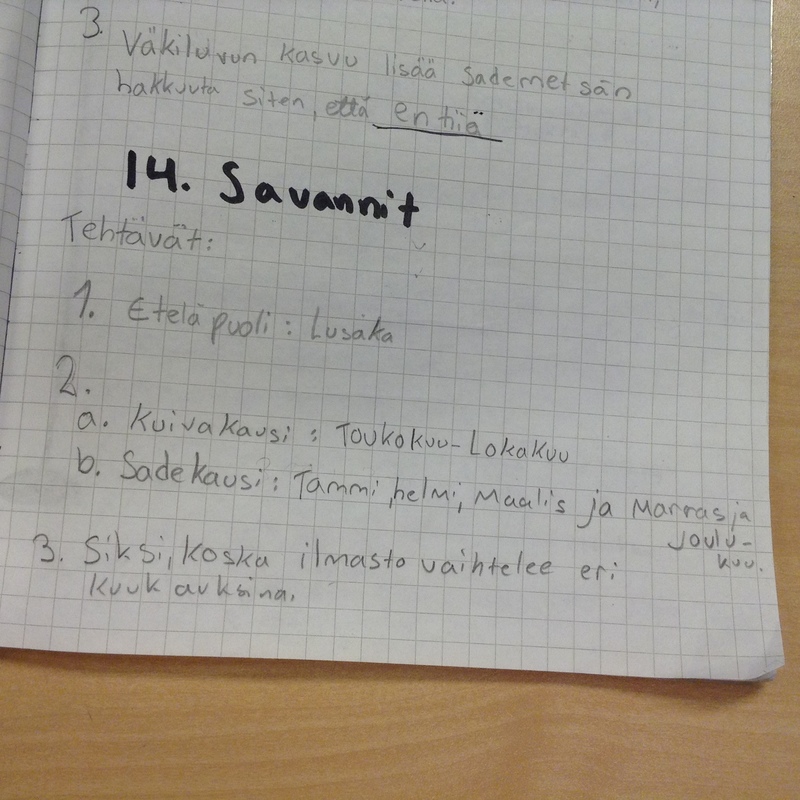 3. Väkiluvun kasvu lisää Sademetsän
hakkuuta siten, että entiiä
14. Savannit
Tehtävät:
1. Eteläpuoli: Lusaka
2.
a. Kuivakausi: Toukokuu-Lokakuu
b. Sadekausi: Tammi, helmi, Maalis ja Marras ja
Joulu-
kuu.
3. Siksi, koska ilmasto vaihtelee eri
kuukauksina.